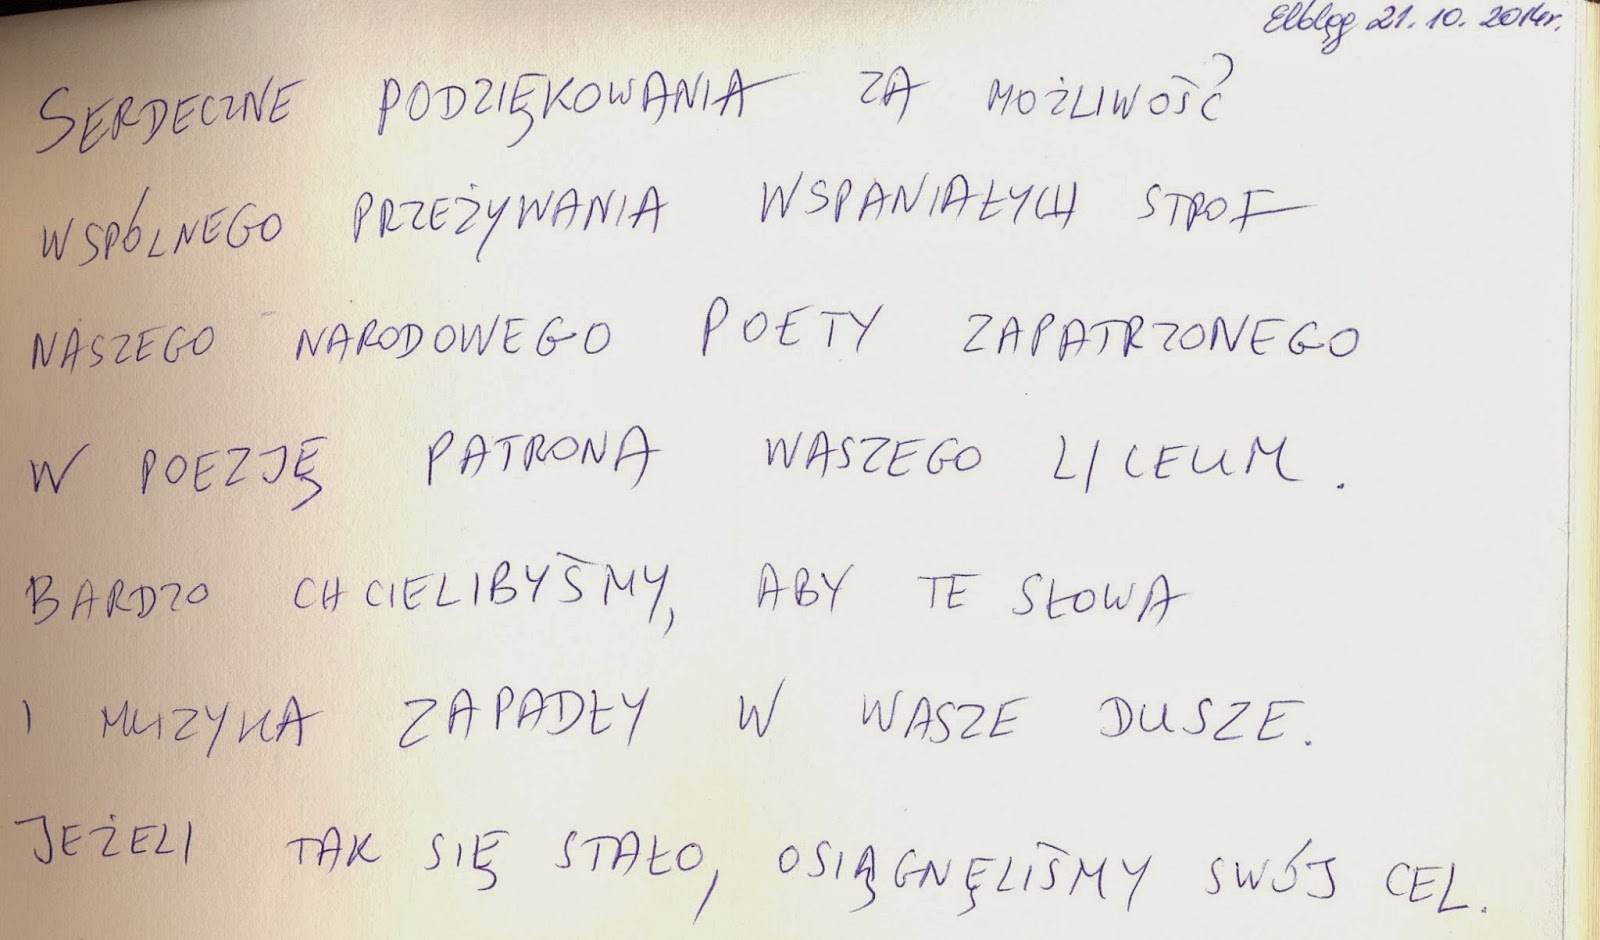 Elbląg 21.10.2014r.
SERDECZNE PODZIĘKOWANIA ZA MOŻLIWOŚĆ
WSPÓLNEGO PRZEŻYWANIA WSPANIAŁYCH STROF
NASZEGO NARODOWEGO POETY ZAPATRZONEGO
W POEZJĘ PATRONA WASZEGO LICEUM.
BARDZO CHCIELIBYŚMY, ABY TE SŁOWA
I MUZYKA ZAPADŁY W WASZE DUSZE.
JEŻELI TAK SIĘ STAŁO, OSIĄGNĘLIŚMY SWÓJ CEL.